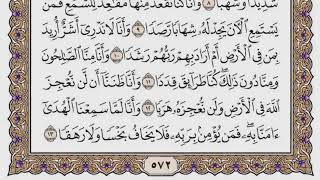 شَدِيدًا وَشُهُبًا ۝٨ وَأَنَّا كُنَّا نَقْعُدُ مِنْهَا مَقَٰعِدَ لِلسَّمْعِ فَمَن
يَسْتَمِعِ ٱلْءَانَ يَجِدْ لَهُۥ شِهَابًا رَّصَدًا ۝٩ وَأَنَّا لَا نَدْرِىٓ أَشَرٌّ أُرِيدَ
بِمَن فِى ٱلْأَرْضِ أَمْ أَرَادَ بِهِمْ رَبُّهُمْ رَشَدًا ۝١٠ وَأَنَّا مِنَّا ٱلصَّٰلِحُونَ
وَمِنَّا دُونَ ذَٰلِكَ كُنَّا طَرَآئِقَ قِدَدًا ۝١١ وَأَنَّا ظَنَنَّآ أَن لَّن نُّعْجِزَ
ٱللَّهَ فِى ٱلْأَرْضِ وَلَن نُّعْجِزَهُۥ هَرَبًا ۝١٢ وَأَنَّا لَمَّا سَمِعْنَا ٱلْهُدَىٰٓ
ءَامَنَّا بِهِۦ فَمَن يُؤْمِنۢ بِرَبِّهِۦ فَلَا يَخَافُ بَخْسًا وَلَا رَهَقًا ۝١٣
٥٧٢